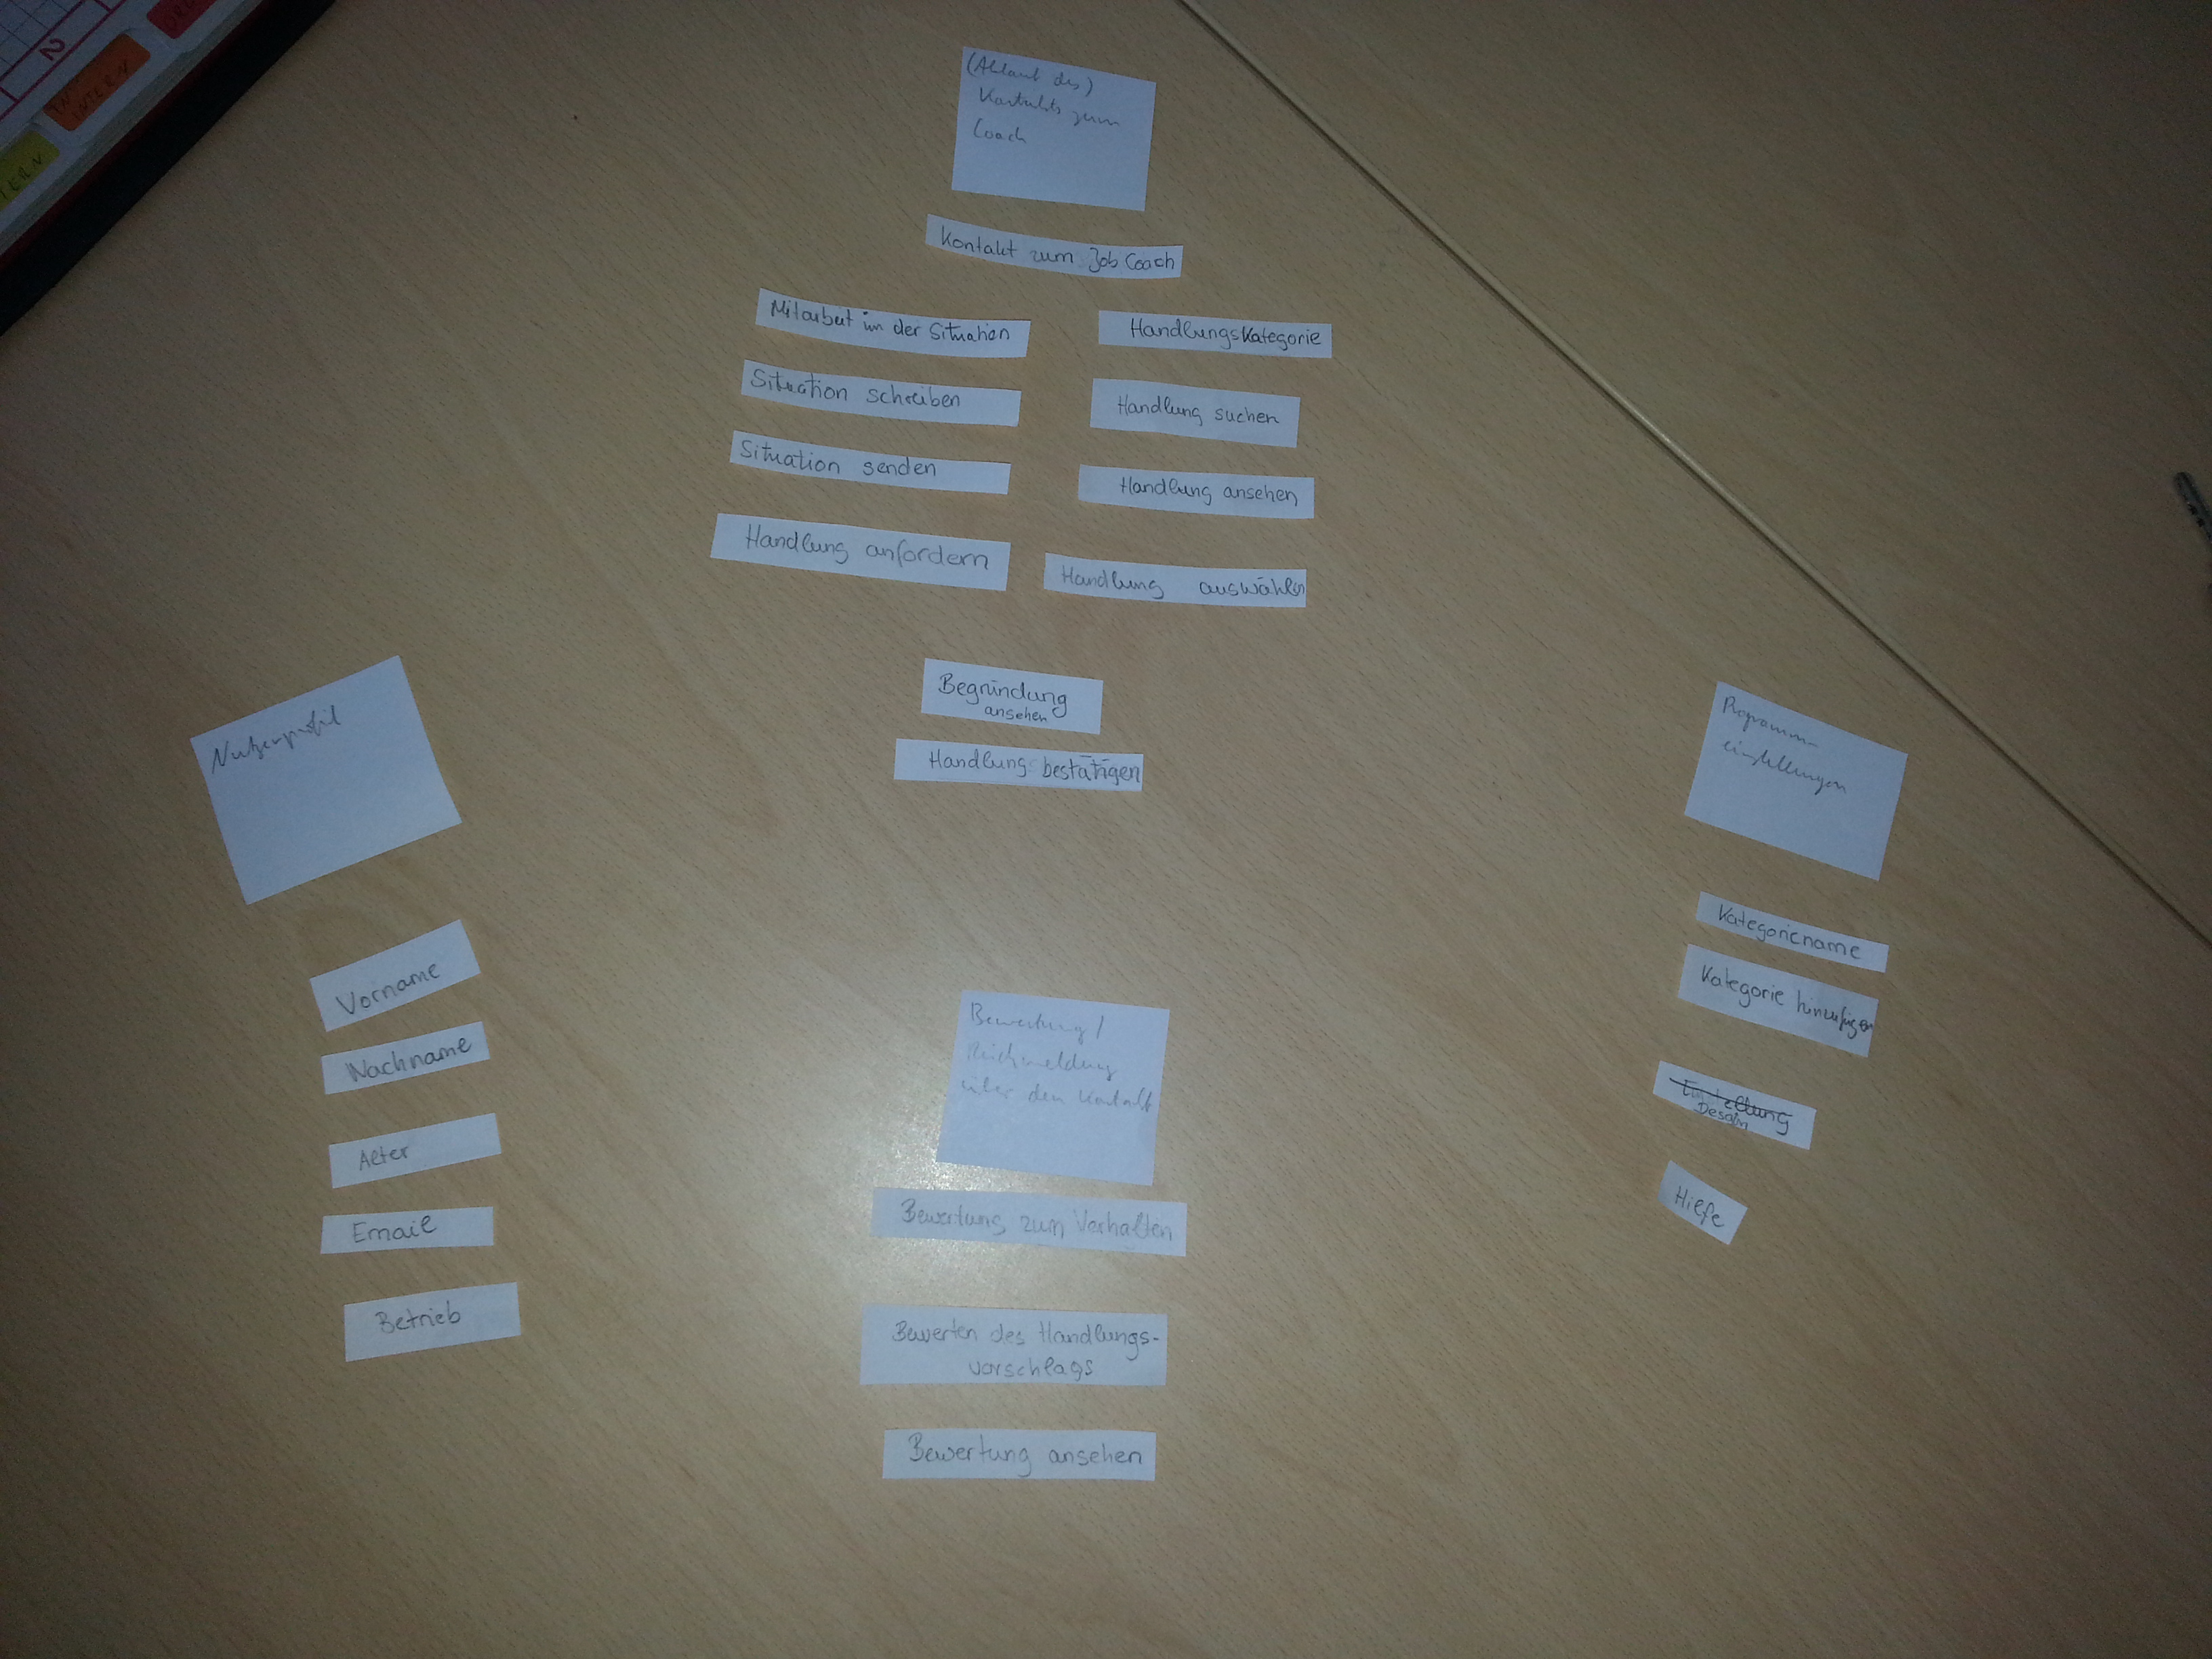 2
INTERN
TERN
(Ablauf des)
Kontakts zum
Coach
Kontakt zum Job Coach
Mitarbeit in der Situation
Situation schreiben
Situation senden
Handlung anfordern
Handlungskategorie
Handlung suchen
Handlung ansehen
Handlung auswählen
Begründung
ansehen
Handlung bestätigen
Nutzerprofil
Vorname
Nachname
Alter
Email
Betrieb
Bewertung /
Rückmeldung
über den Kontakt
Bewertung zum Verhalten
Bewerten des Handlungs-
vorschlags
Bewertung ansehen
Programm-
einstellungen
Kategoriename
Kategorie hinzufügen
Einstellung
Design
Hilfe